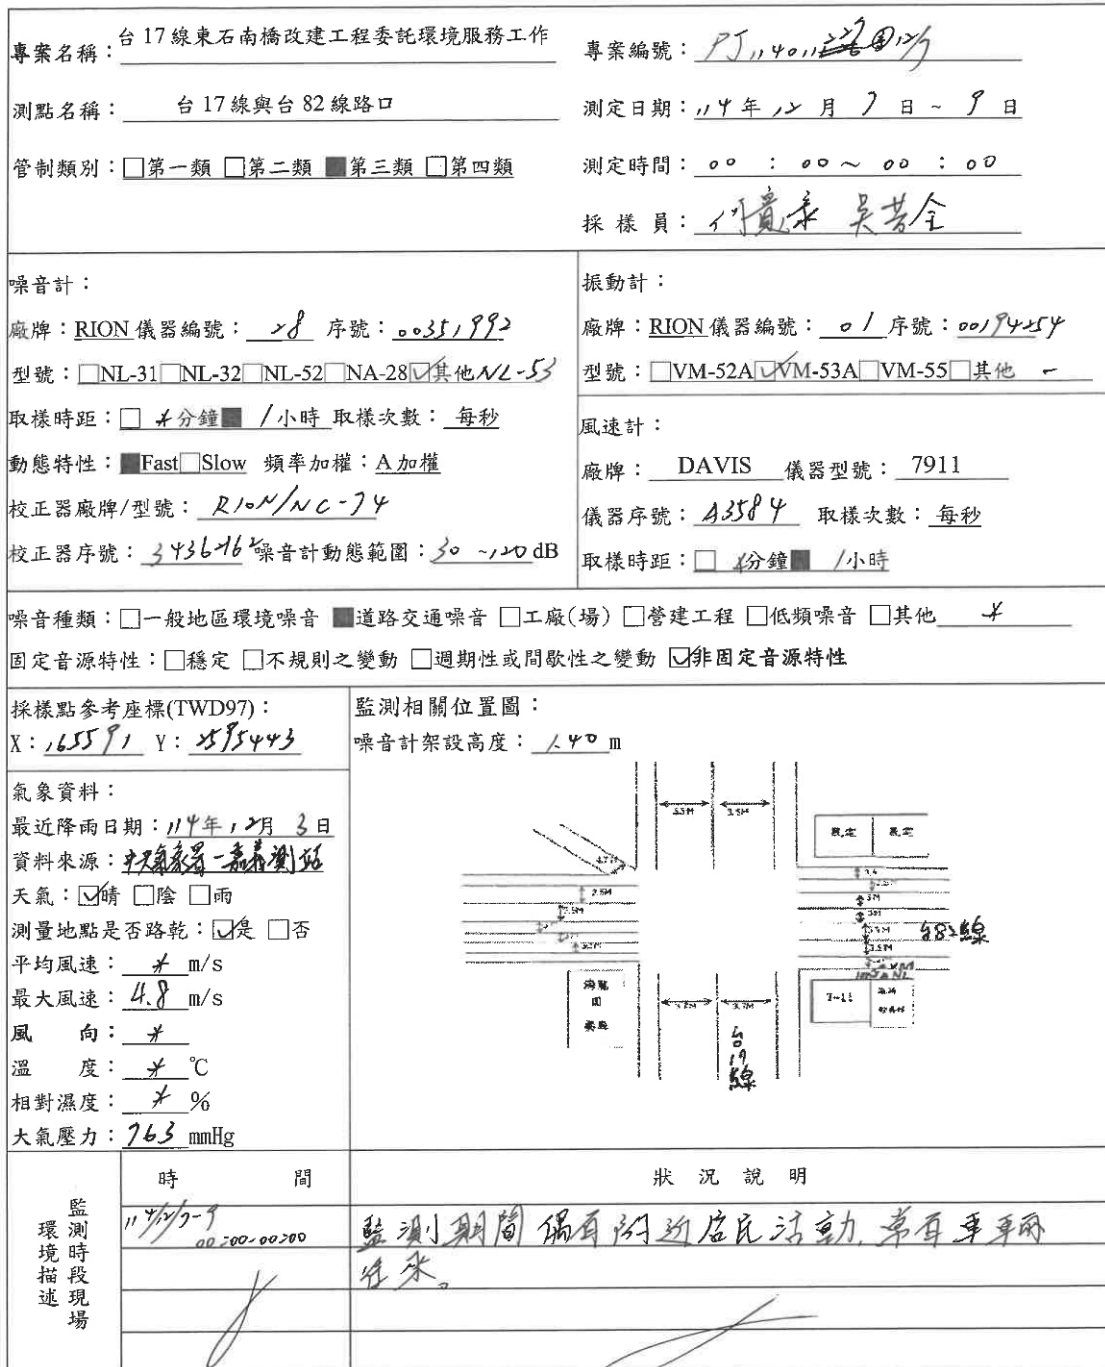 專案名稱：台 17 線東石南橋改建工程委託環境服務工作
專案編號：PJ11401
測點名稱：台 17 線與台 82 線路口
測定日期：114 年 12 月 7 日 ~ 9 日
管制類別：□第一類 □第二類 ■第三類 □第四類
測定時間：00 : 00 ~ 00 : 00
採 樣 員：
噪音計：
廠牌：RION 儀器編號：28 序號：00351992
型號：□NL-31□NL-32□NL-52□NA-28☑其他 NL-53
取樣時距：□ *分鐘■ 1小時 取樣次數：每秒
動態特性：■Fast□Slow 頻率加權：A 加權
校正器廠牌/型號：RION/NC-74
校正器序號：34362162 噪音計動態範圍：30 ~120 dB
振動計：
廠牌：RION 儀器編號：01 序號：00194254
型號：□VM-52A☑VM-53A□VM-55□其他 -
風速計：
廠牌：DAVIS 儀器型號：7911
儀器序號：A3584 取樣次數：每秒
取樣時距：□ *分鐘■ 1小時
噪音種類：□一般地區環境噪音 ■道路交通噪音 □工廠(場) □營建工程 □低頻噪音 □其他 *
固定音源特性：□穩定 □不規則之變動 □週期性或間歇性之變動 ☑非固定音源特性
採樣點參考座標(TWD97)：
X：165591 Y：2595443
氣象資料：
最近降雨日期：114年12月 3日
資料來源：中央氣象署-嘉義測站
天氣：☑晴 □陰 □雨
測量地點是否路乾：☑是 □否
平均風速：* m/s
最大風速：4.8 m/s
風 向：*
溫 度：* ℃
相對濕度：* %
大氣壓力：763 mmHg
監測相關位置圖：
噪音計架設高度：1.40 m
3.5M
民宅
民宅
2.5M
3M
3.5M
台82線
7-11
台17線
監測時段現場環境描述
時 間
狀 況 說 明
114/12/7-9
00:00-00:00
監測期間偶有附近居民活動,常有車輛
往來。